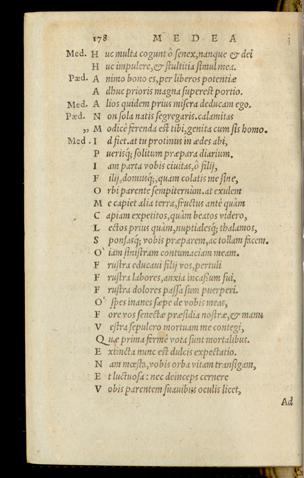 178 MEDEA
Med. Huc multa cogunt ô senex, nanque & dei
Huc impulere, & stultitia simul mea.
Pæd. Animo bono es, per liberos potentiæ
Adhuc prioris magna superest portio.
Med. Alios quidem prius misera deducam ego.
Pæd. Non sola natis segregaris. calamitas
„ Modicè ferenda est tibi, genita cum sis homo.
Med. Id fiet. at tu protinus in ædes abi,
Puerisq; solitum præpara diarium.
Iam parta vobis ciuitas, ô filij,
Filij, domusq;, quam colatis me sine,
Orbi parente sempiternùm. at exulem
Me capiet alia terra, fructus antè quàm
Capiam expetitos, quàm beatos videro,
Lectos prius quàm, nuptialesq; thalamos,
Sponsasq; vobis præparem, ac tollam facem.
O' iam sinistram contumaciam meam.
Frustra educaui filij vos, pertuli
Frustra labores, anxia incassum fui,
Frustra dolores passa sum puerperi.
O' spes inanes sæpe de vobis meas,
Fore vos senectæ præsidia nostræ, & manu
Vestra sepulcro mortuam me contegi,
Quæ prima fermè vota sunt mortalibus.
Extincta nunc est dulcis expectatio.
Nam mœsta, vobis orba vitam transigam,
Et luctuosa: nec deinceps cernere
Vobis parentem suauibus oculis licet,
Ad